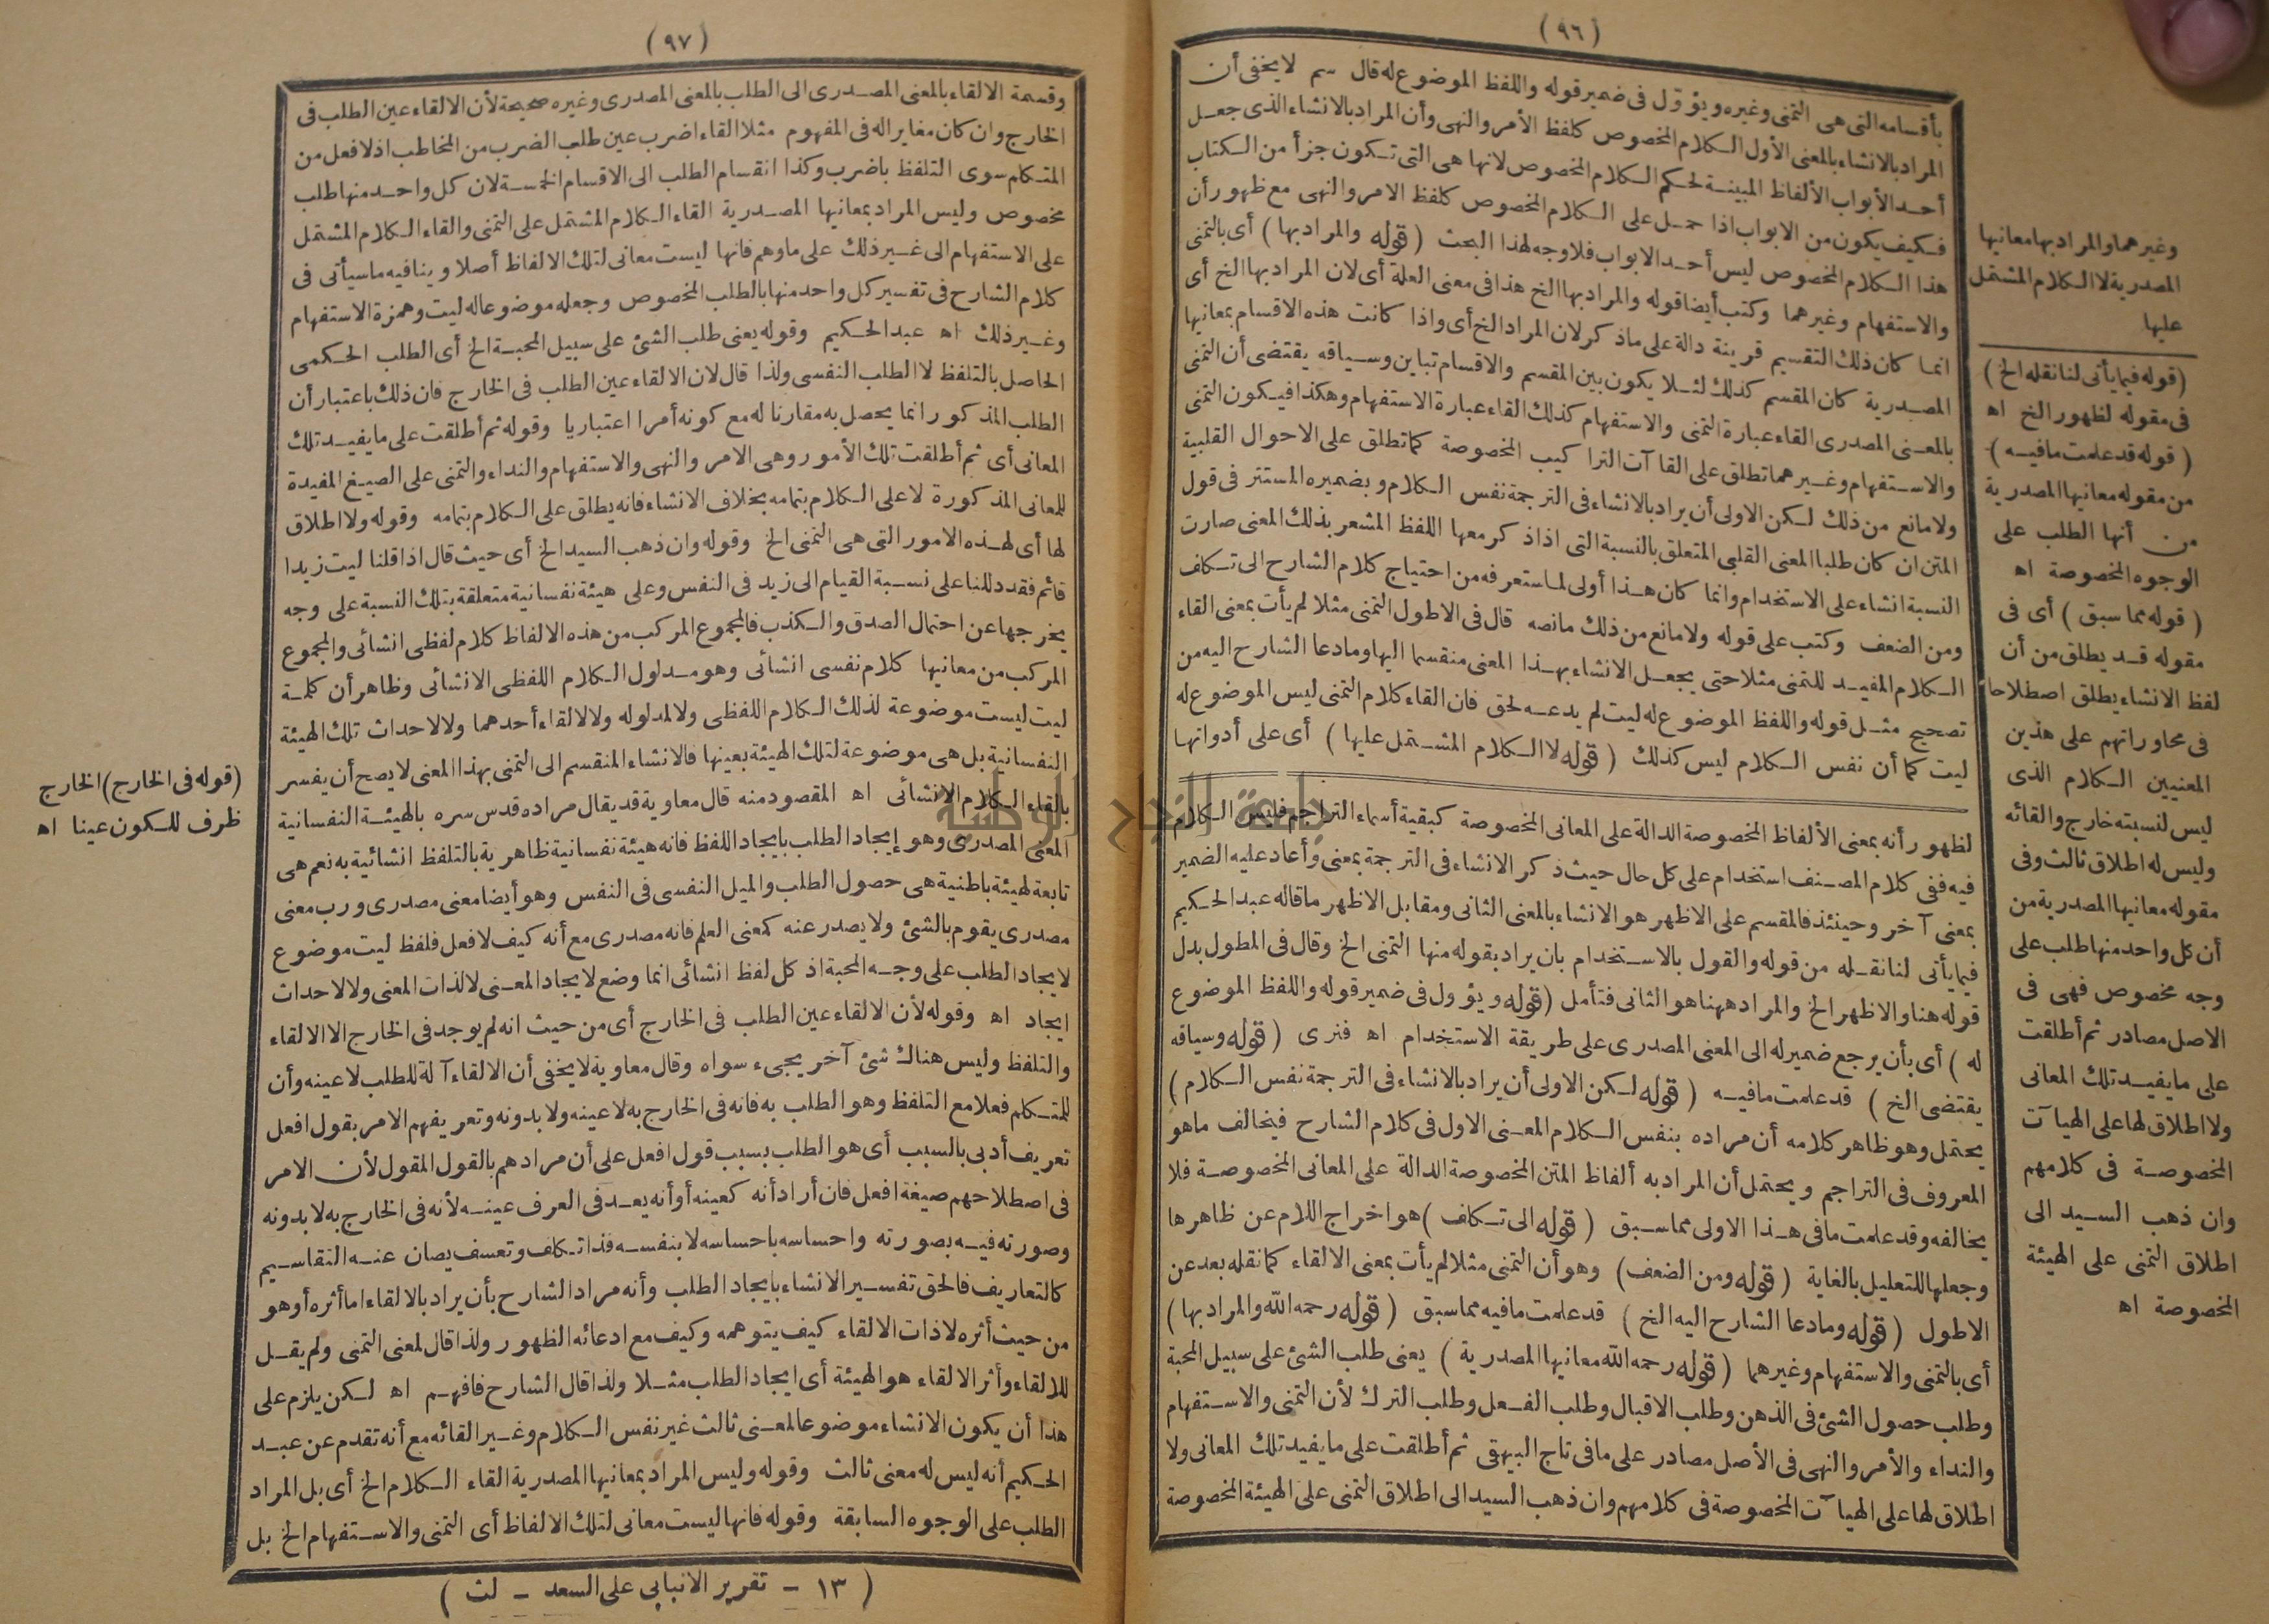 (٩٦)
بأقسامه التي هى التمنى وغيره ويؤول فى ضمير قوله واللفظ الموضوع له قال سم لا يخفى أن
المراد بالانشاء بالمعنى الأول الكلام المخصوص كلفظ الأمر والنهى وأن المراد بالانشاء الذى جعل
أحد الأبواب الألفاظ المبينة لحكم الكلام المخصوص لانها هى التى تكون جزأ من الكتاب
فكيف يكون من الابواب اذا حمل على الكلام المخصوص كلفظ الامر والنهى مع ظهور أن
هذا الكلام المخصوص ليس أحد الابواب فلا وجه لهذا البحث (قوله والمراد بها) أى بالتمنى
والاستفهام وغيرهما وكتب أيضا قوله والمراد بها الخ هذا فى معنى العلة أى لان المراد بها الخ أى
انما كان ذلك التقسيم قرينة دالة على ماذكر لان المراد الخ أى واذا كانت هذه الاقسام بمعانيها
المصدرية كان المقسم كذلك لئلا يكون بين المقسم والاقسام تباين وسياقه يقتضى أن التمنى
بالمعنى المصدرى القاء عبارة التمنى والاستفهام كذلك القاء عبارة الاستفهام وهكذا فيكون التمنى
والاستفهام وغيرهما تطلق على القاآت التراكيب المخصوصة كما تطلق على الاحوال القلبية
ولا مانع من ذلك لكن الاولى أن يراد بالانشاء فى الترجمة نفس الكلام وبضميره المستتر فى قول
المتن ان كان طلبا المعنى القلبى المتعلق بالنسبة التى اذا ذكر معها اللفظ المشعر بذلك المعنى صارت
النسبة انشاء على الاستخدام وانما كان هذا أولى لما ستعرفه من احتياج كلام الشارح الى تكلف
ومن الضعف وكتب على قوله ولا مانع من ذلك مانصه قال فى الاطول التمنى مثلا لم يأت بمعنى القاء
الكلام المفيد للتمنى مثلا حتى يجعل الانشاء بهذا المعنى منقسما اليها وما دعا الشارح اليه من
تصحيح مثل قوله واللفظ الموضوع له ليت لم يدعه لحق فان القاء كلام التمنى ليس الموضوع له
ليت كما أن نفس الكلام ليس كذلك (قوله لا الكلام المشتمل عليها) أى على أدواتها
لظهور أنه بمعنى الألفاظ المخصوصة الدالة على المعانى المخصوصة كبقية أسماء التراجم فليس الكلام
فيه ففى كلام المصنف استخدام على كل حال حيث ذكر الانشاء فى الترجمة بمعنى وأعاد عليه الضمير
بمعنى آخر وحينئذ فالمقسم على الاظهر هو الانشاء بالمعنى الثانى ومقابل الاظهر ما قاله عبد الحكيم
فيما يأتى لنا نقله من قوله والقول بالاستخدام بان يراد بقوله منها التمنى الخ وقال فى المطول بدل
قوله هنا والاظهر الخ والمراد ههنا هو الثانى فتأمل (قوله ويؤول فى ضمير قوله واللفظ الموضوع
له) أى بأن يرجع ضمير له الى المعنى المصدرى على طريقة الاستخدام اه فنرى (قوله وسياقه
يقتضى الخ) قد علمت ما فيه (قوله لكن الاولى أن يراد بالانشاء فى الترجمة نفس الكلام)
يحتمل وهو ظاهر كلامه أن مراده بنفس الكلام المعنى الاول فى كلام الشارح فيخالف ما هو
المعروف فى التراجم ويحتمل أن المراد به ألفاظ المتن المخصوصة الدالة على المعانى المخصوصة فلا
يخالفه وقد علمت ما فى هذا الاولى مما سبق (قوله الى تكلف) هو اخراج اللام عن ظاهرها
وجعلها للتعليل بالغاية (قوله ومن الضعف) وهو أن التمنى مثلا لم يأت بمعنى الالقاء كما نقله بعد عن
الاطول (قوله وما دعا الشارح اليه الخ) قد علمت ما فيه مما سبق (قوله رحمه الله والمراد بها)
أى بالتمنى والاستفهام وغيرهما (قوله رحمه الله معانيها المصدرية) يعنى طلب الشئ على سبيل المحبة
وطلب حصول الشئ فى الذهن وطلب الاقبال وطلب الفعل وطلب الترك لأن التمنى والاستفهام
والنداء والأمر والنهى فى الأصل مصادر على ما فى تاج البيهقى ثم أطلقت على ما يفيد تلك المعانى ولا
اطلاق لها على الهيآت المخصوصة فى كلامهم وان ذهب السيد الى اطلاق التمنى على الهيئة المخصوصة
وغيرهما والمراد بها معانيها
المصدرية لا الكلام المشتمل
عليها
(قوله فيما يأتى لنا نقله الخ)
فى مقوله لظهور الخ اه
(قوله قد علمت ما فيه)
من مقوله معانيها المصدرية
من أنها الطلب على
الوجوه المخصوصة اه
(قوله مما سبق) أى فى
مقوله قد يطلق من أن
لفظ الانشاء يطلق اصطلاحا
فى محاوراتهم على هذين
المعنيين الكلام الذى
ليس لنسبته خارج والقائه
وليس له اطلاق ثالث وفى
مقوله معانيها المصدرية من
أن كل واحد منها طلب على
وجه مخصوص فهى فى
الاصل مصادر ثم أطلقت
على ما يفيد تلك المعانى
ولا اطلاق لها على الهيآت
المخصوصة فى كلامهم
وان ذهب السيد الى
اطلاق التمنى على الهيئة
المخصوصة اه
(٩٧)
وقسمة الالقاء بالمعنى المصدرى الى الطلب بالمعنى المصدرى وغيره صحيحة لأن الالقاء عين الطلب فى
الخارج وان كان مغايرا له فى المفهوم مثلا القاء اضرب عين طلب الضرب من المخاطب اذ لا فعل من
المتكلم سوى التلفظ باضرب وكذا انقسام الطلب الى الاقسام الخمسة لان كل واحد منها طلب
مخصوص وليس المراد بمعانيها المصدرية القاء الكلام المشتمل على التمنى والقاء الكلام المشتمل
على الاستفهام الى غير ذلك على ما وهم فانها ليست معانى لتلك الالفاظ أصلا وينافيه ما سيأتى فى
كلام الشارح فى تفسير كل واحد منها بالطلب المخصوص وجعله موضوعا له ليت وهمزة الاستفهام
وغير ذلك اه عبد الحكيم وقوله يعنى طلب الشئ على سبيل المحبة الخ أى الطلب الحكمى
الحاصل بالتلفظ لا الطلب النفسى ولذا قال لان الالقاء عين الطلب فى الخارج فان ذلك باعتبار أن
الطلب المذكور انما يحصل به مقارنا له مع كونه أمرا اعتباريا وقوله ثم أطلقت على ما يفيد تلك
المعانى أى ثم أطلقت تلك الأمور وهى الامر والنهى والاستفهام والنداء والتمنى على الصيغ المفيدة
للمعانى المذكورة لا على الكلام بتمامه بخلاف الانشاء فانه يطلق على الكلام بتمامه وقوله ولا اطلاق
لها أى لهذه الامور التى هى التمنى الخ وقوله وان ذهب السيد الخ أى حيث قال اذا قلنا ليت زيدا
قائم فقد دللنا على نسبة القيام الى زيد فى النفس وعلى هيئة نفسانية متعلقة بتلك النسبة على وجه
يخرجها عن احتمال الصدق والكذب فالمجموع المركب من هذه الالفاظ كلام لفظى انشائى والمجموع
المركب من معانيها كلام نفسى انشائى وهو مدلول الكلام اللفظى الانشائى وظاهر أن كلمة
ليت ليست موضوعة لذلك الكلام اللفظى ولا لمدلوله ولا لالقاء أحدهما ولا لاحداث تلك الهيئة
النفسانية بل هى موضوعة لتلك الهيئة بعينها فالانشاء المنقسم الى التمنى بهذا المعنى لا يصح أن يفسر
بالقاء الكلام الانشائى اه المقصود منه قال معاوية قد يقال مراده قدس سره بالهيئة النفسانية
المعنى المصدرى وهو إيجاد الطلب بايجاد اللفظ فانه هيئة نفسانية ظاهرية بالتلفظ انشائية به نعم هى
تابعة لهيئة باطنية هى حصول الطلب والميل النفسى فى النفس وهو أيضا معنى مصدرى ورب معنى
مصدرى يقوم بالشئ ولا يصدر عنه كمعنى العلم فانه مصدرى مع أنه كيف لا فعل فلفظ ليت موضوع
لايجاد الطلب على وجه المحبة اذ كل لفظ انشائى انما وضع لايجاد المعنى لا لذات المعنى ولا لاحداث
ايجاد اه وقوله لأن الالقاء عين الطلب فى الخارج أى من حيث انه لم يوجد فى الخارج الا الالقاء
والتلفظ وليس هناك شئ آخر يجىء سواه وقال معاوية لا يخفى أن الالقاء آلة للطلب لا عينه وأن
للمتكلم فعلا مع التلفظ وهو الطلب به فانه فى الخارج به لا عينه ولا بدونه وتعريفهم الامر بقول افعل
تعريف أدبى بالسبب أى هو الطلب بسبب قول افعل على أن مرادهم بالقول المقول لأن الامر
فى اصطلاحهم صيغة افعل فان أراد أنه كعينه أو أنه يعد فى العرف عينه لأنه فى الخارج به لا بدونه
وصورته فيه بصورته واحساسه باحساسه لا بنفسه فذا تكلف وتعسف يصان عنه التقاسيم
كالتعاريف فالحق تفسير الانشاء بايجاد الطلب وأنه مراد الشارح بأن يراد بالالقاء اما أثره أو هو
من حيث أثره لا ذات الالقاء كيف يتوهمه وكيف مع ادعائه الظهور ولذا قال لمعنى التمنى ولم يقل
للالقاء وأثر الالقاء هو الهيئة أى ايجاد الطلب مثلا ولذا قال الشارح فافهم اه لكن يلزم على
هذا أن يكون الانشاء موضوعا لمعنى ثالث غير نفس الكلام وغير القائه مع أنه تقدم عن عبد
الحكيم أنه ليس له معنى ثالث وقوله وليس المراد بمعانيها المصدرية القاء الكلام الخ أى بل المراد
الطلب على الوجوه السابقة وقوله فانها ليست معانى لتلك الالفاظ أى التمنى والاستفهام الخ بل
(قوله فى الخارج) الخارج
ظرف للكون عينا اه
(١٣ - تقرير الانبابى على السعد - لث)
جامعة النجاح الوطنية